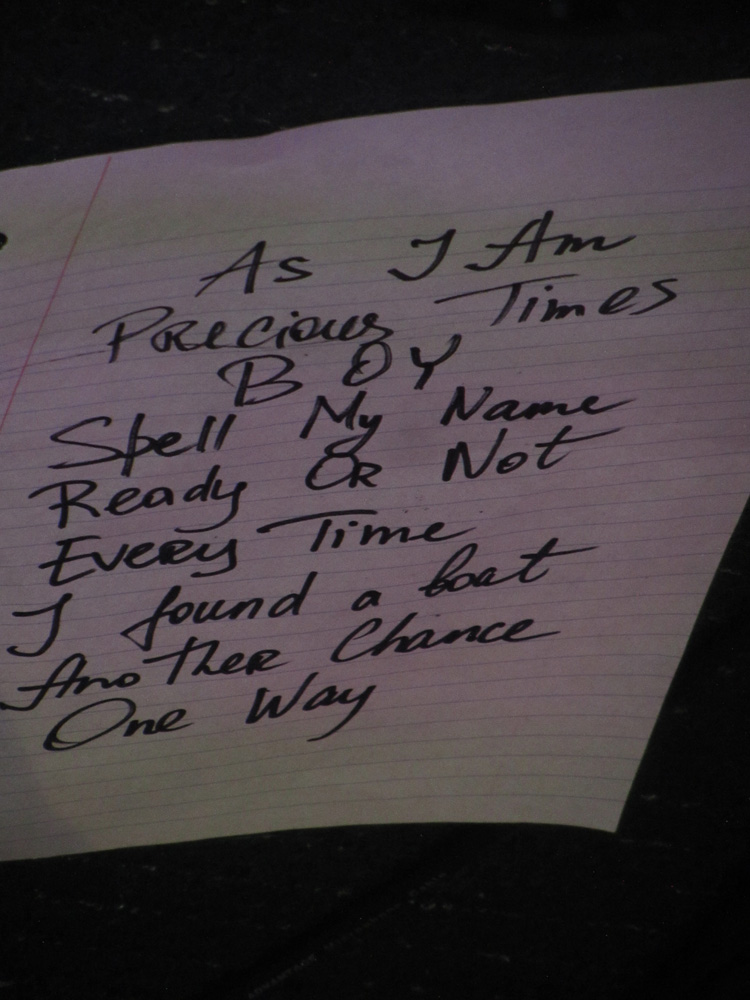 As I Am
Precious Times
BOY
Spell My Name
Ready Or Not
Every Time
I found a boat
Another Chance
One Way